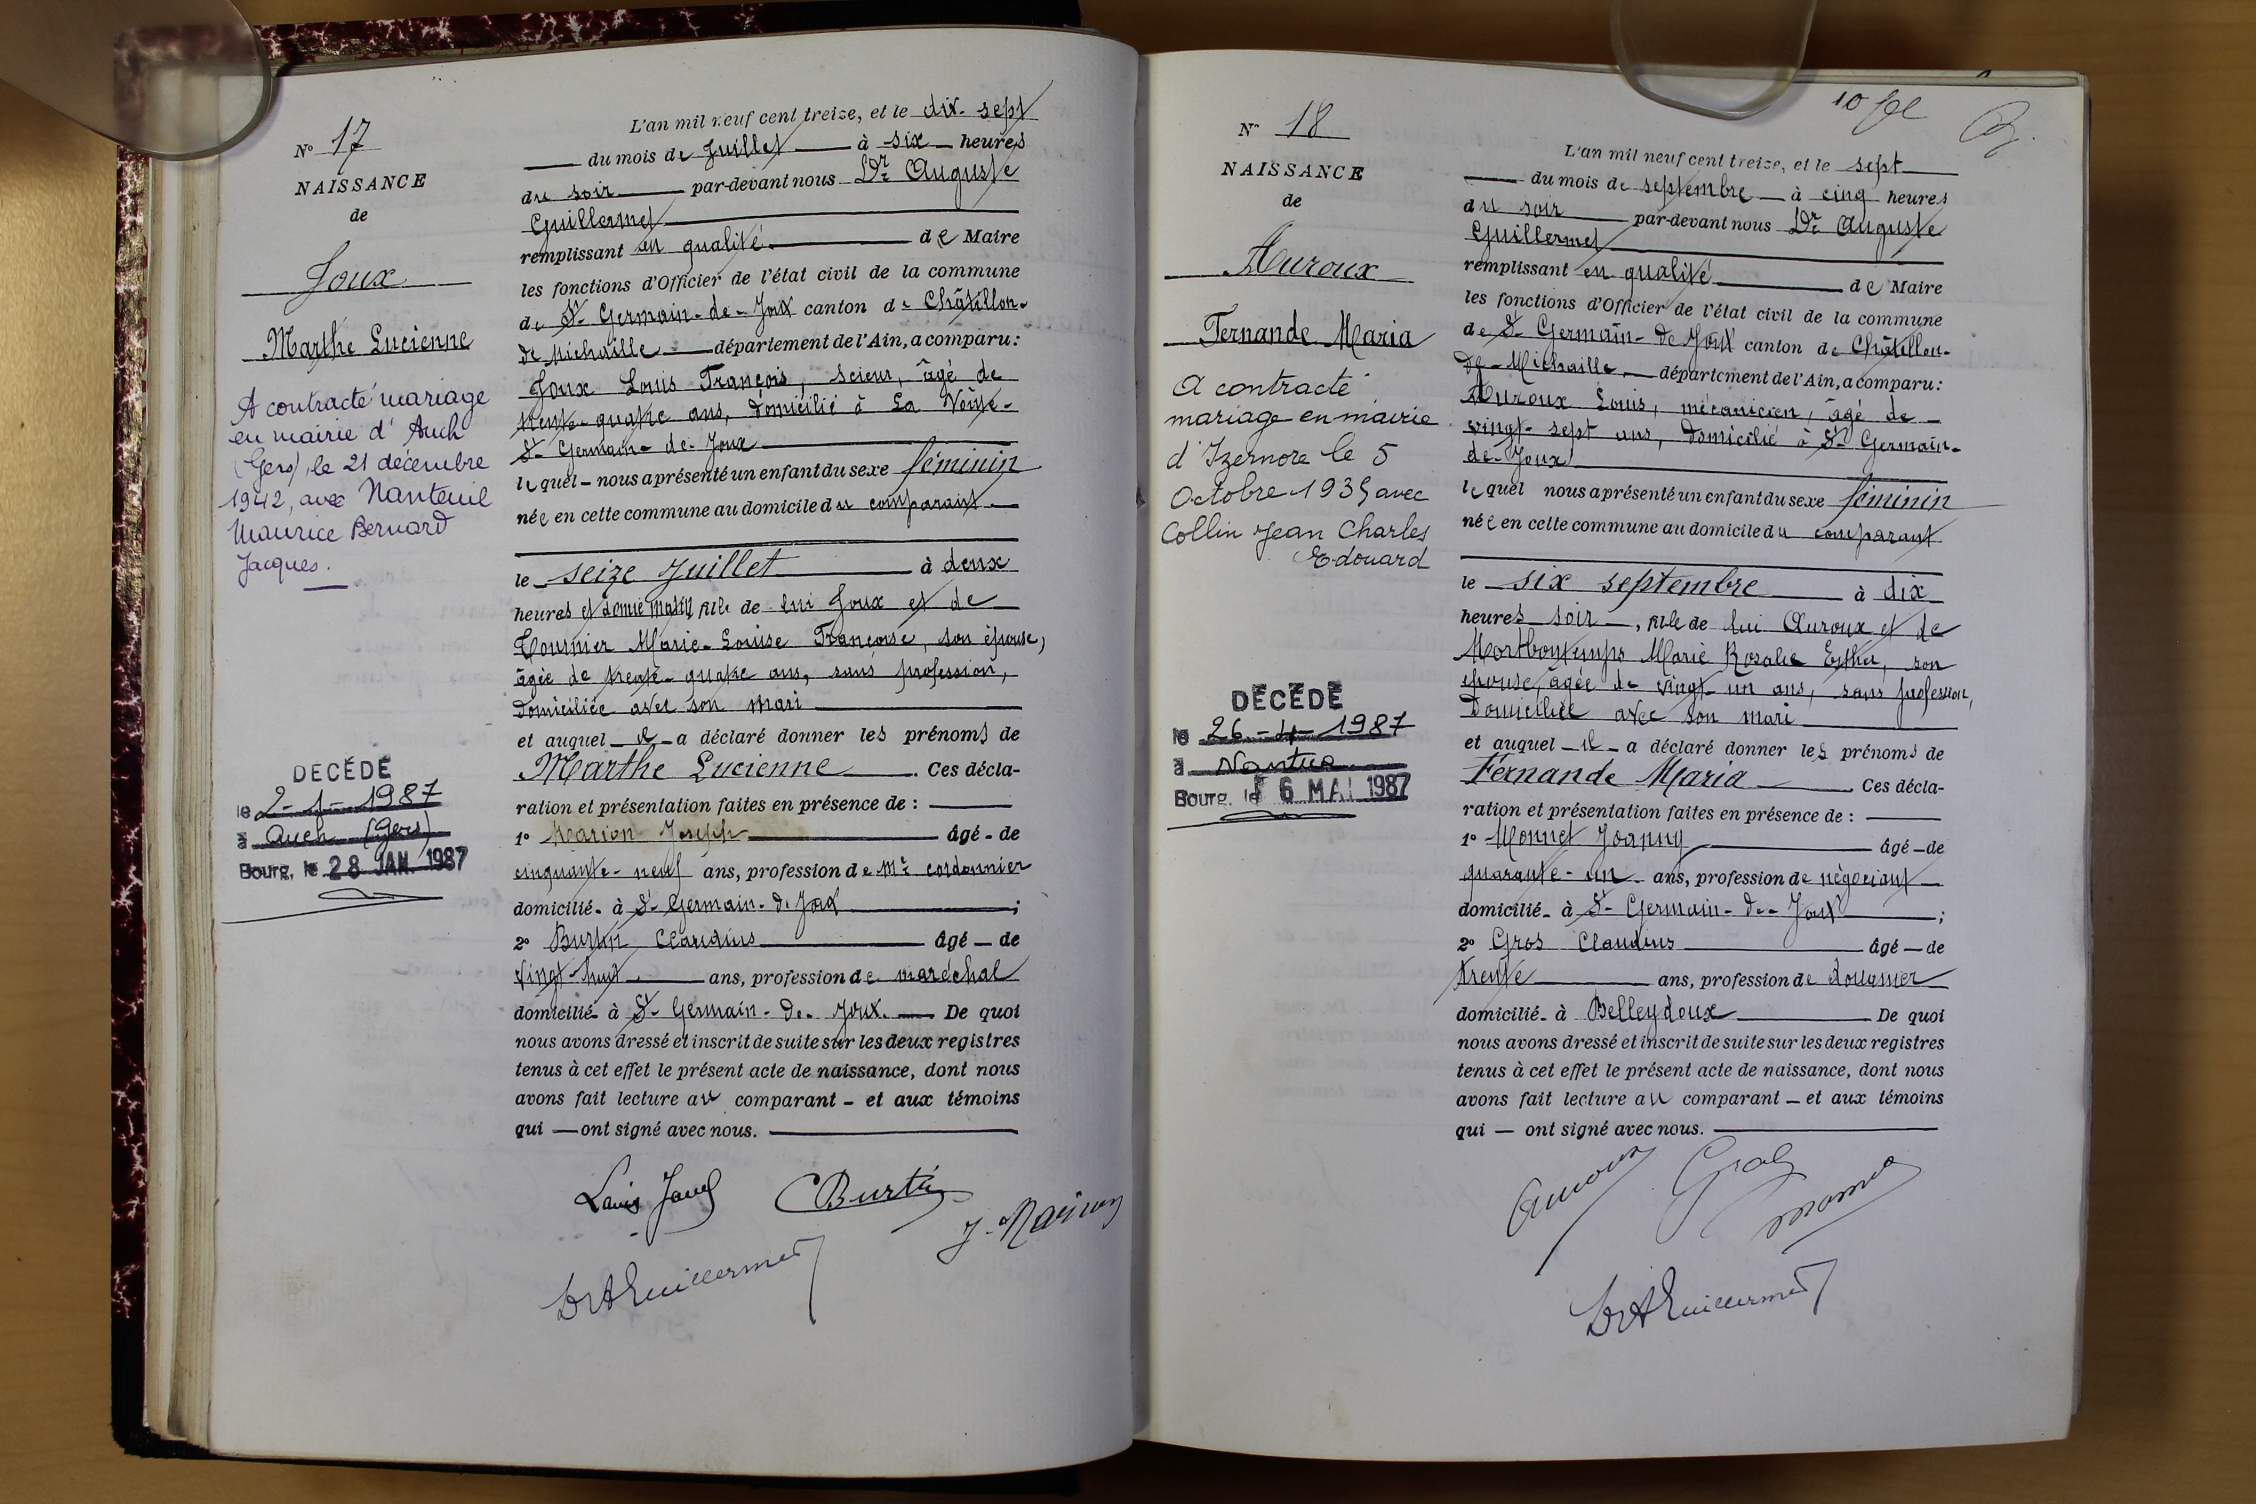 N° 17
NAISSANCE
de
Joux
Marthe Lucienne
A contracté mariage
en mairie d'Auch
(Gers), le 21 décembre
1942, avec Nanteuil
Maurice Bernard
Jacques.
DÉCÉDÉ
le 2-1-1987
à Auch (Gers)
Bourg, le 28 JAN. 1987
L'an mil neuf cent treize, et le dix-sept
du mois de Juillet à six heures
du soir par-devant nous Dr Auguste
Guillermet
remplissant en qualité de Maire
les fonctions d'Officier de l'état civil de la commune
de St Germain-de-Joux canton de Châtillon-
de Michaille département de l'Ain, a comparu :
Joux Louis François, scieur, âgé de
trente-quatre ans, domicilié à La
St Germain-de-Joux
lequel nous a présenté un enfant du sexe féminin
née en cette commune au domicile du comparant
le seize Juillet à deux
heures et demie matin, fille de lui Joux et de
Tournier Marie-Louise Françoise, son épouse,
âgée de trente-quatre ans, sans profession,
domiciliée avec son mari
et auquel il a déclaré donner les prénoms de
Marthe Lucienne. Ces décla-
ration et présentation faites en présence de :
1° Marion Joseph âgé de
cinquante-neuf ans, profession de Me cordonnier
domicilié à St Germain-de-Joux ;
2° Burtin Claudius âgé de
vingt-huit ans, profession de maréchal
domicilié à St Germain-de-Joux. De quoi
nous avons dressé et inscrit de suite sur les deux registres
tenus à cet effet le présent acte de naissance, dont nous
avons fait lecture au comparant et aux témoins
qui ont signé avec nous.
Louis Joux CBurtin
J. Marion
Dr A Guillermet
10 fe
N° 18
NAISSANCE
de
Auroux
Fernande Maria
A contracté
mariage en mairie
d'Izernore le 5
Octobre 1935 avec
Collin Jean Charles
Edouard
DÉCÉDÉ
le 26-4-1987
à Nantua
Bourg, le 6 MAI 1987
L'an mil neuf cent treize, et le sept
du mois de septembre à cinq heures
du soir par-devant nous Dr Auguste
Guillermet
remplissant en qualité de Maire
les fonctions d'Officier de l'état civil de la commune
de St Germain-de Joux canton de Châtillon-
de-Michaille, département de l'Ain, a comparu :
Auroux Louis, mécanicien, âgé de
vingt-sept ans, domicilié à St Germain-
de-Joux
lequel nous a présenté un enfant du sexe féminin
née en cette commune au domicile du comparant
le six septembre à dix
heures soir, fille de lui Auroux et de
Montbontemps Marie Rosalie Esther, son
épouse, âgée de vingt-un ans, sans profession,
domiciliée avec son mari
et auquel il a déclaré donner les prénoms de
Fernande Maria. Ces décla-
ration et présentation faites en présence de :
1° Monnet Joanny âgé de
quarante-un ans, profession de négociant
domicilié à St Germain-de-Joux ;
2° Gros Claudius âgé de
trente ans, profession de douanier
domicilié à Belleydoux De quoi
nous avons dressé et inscrit de suite sur les deux registres
tenus à cet effet le présent acte de naissance, dont nous
avons fait lecture au comparant et aux témoins
qui ont signé avec nous.
Auroux Gros
Monnet
Dr A Guillermet